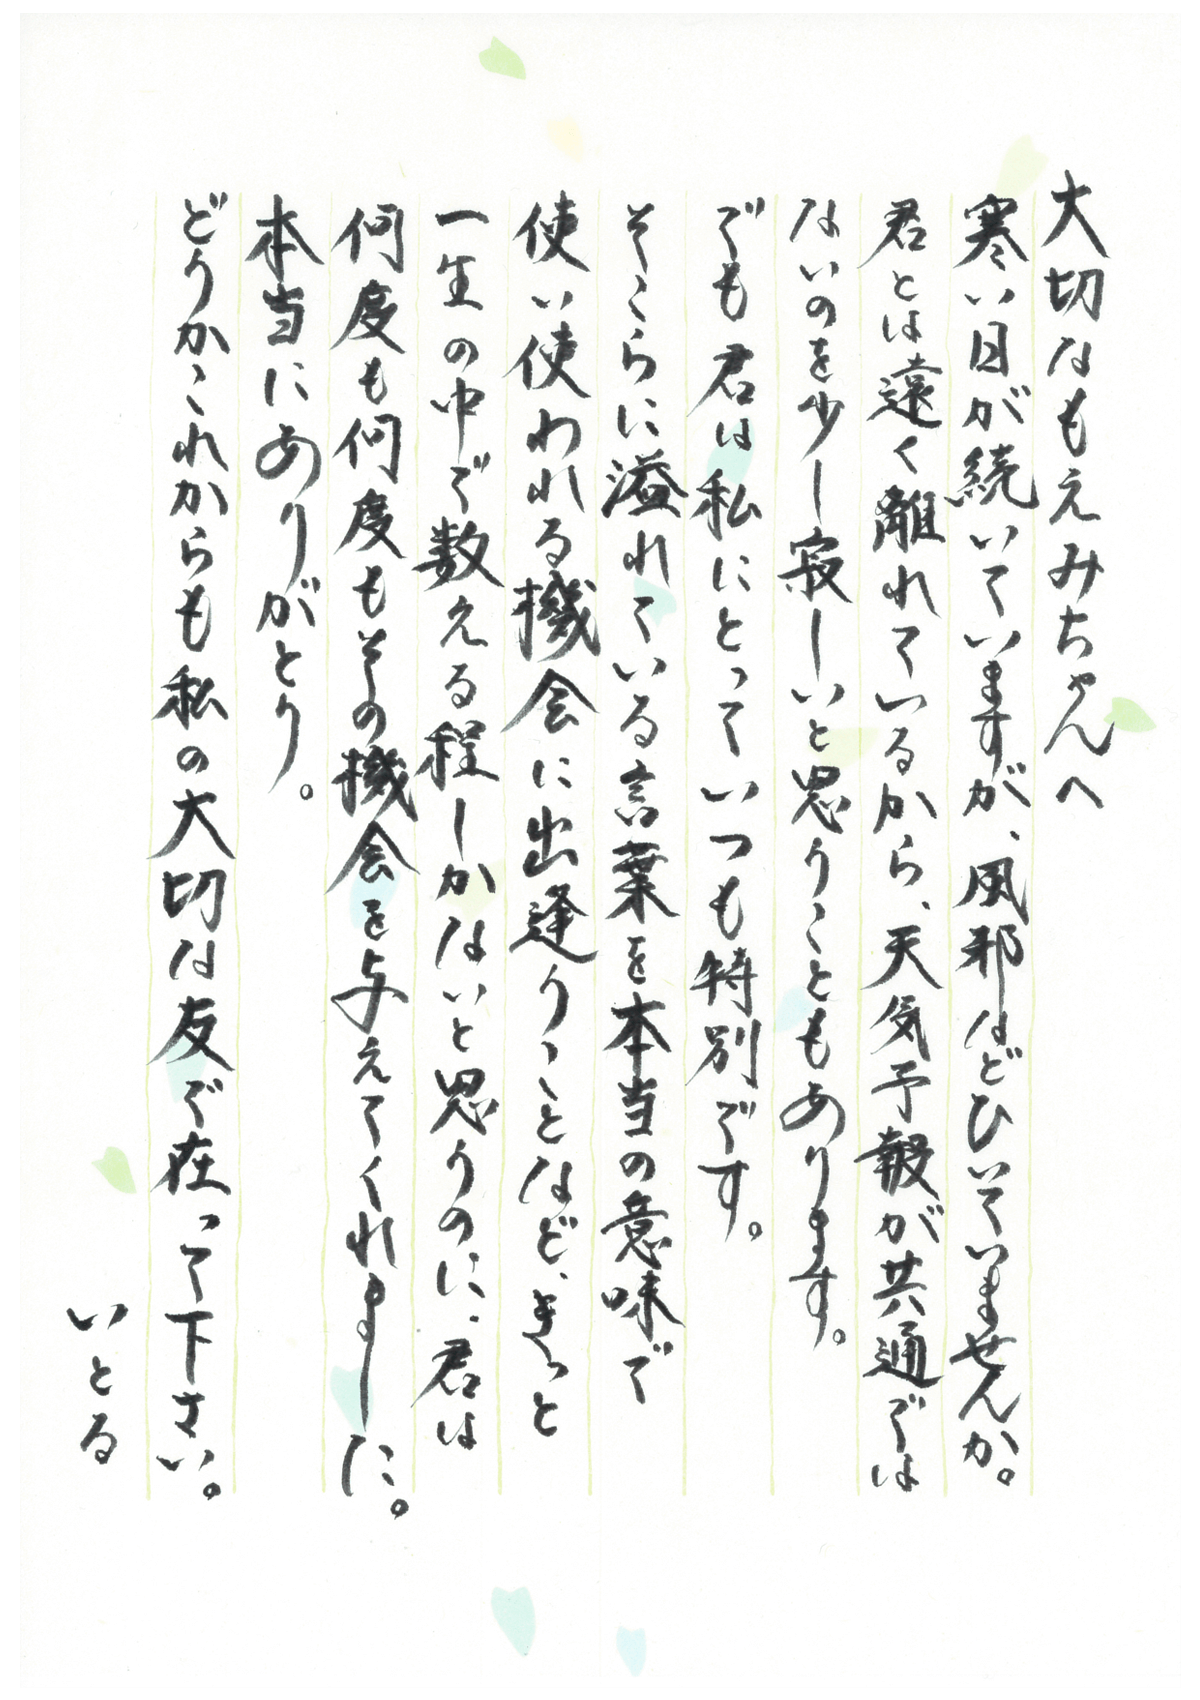 大切なもえみちゃんへ
寒い日が続いていますが、風邪などひいていませんか。
君とは遠く離れているから、天気予報が共通では
ないのを少し寂しいと思うこともあります。
でも君は私にとっていつも特別です。
そこらに溢れている言葉を本当の意味で
使い使われる機会に出逢うことなど、きっと
一生の中で数える程しかないと思うのに、君は
何度も何度もその機会を与えてくれました。
本当にありがとう。
どうかこれからも私の大切な友で在って下さい。
いとる